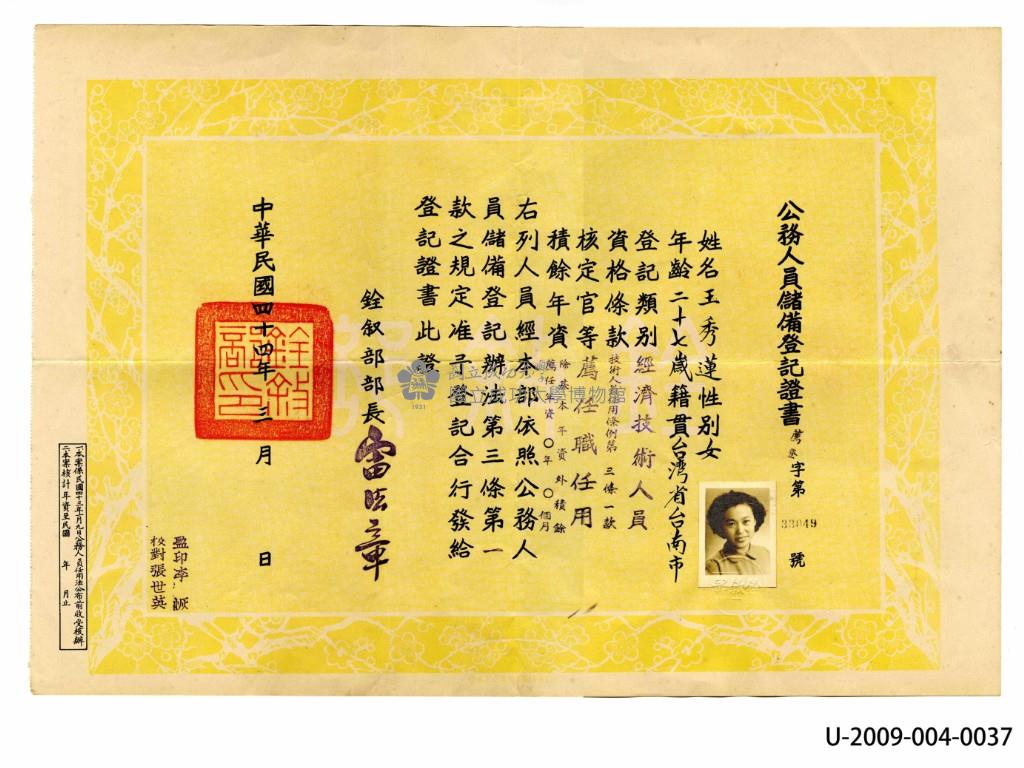 公務人員儲備登記證書
字第33049號
姓名王秀蓮性別女
年齡二十七歲籍貫台灣省台南市
登記類別經濟技術人員
資格條款技術人員任用條例第三條一款
核定官等薦任職任用
積餘年資除基本年資外積餘薦任年資〇年〇個月
右列人員經本部依照公務人
員儲備登記辦法第三條第一
款之規定准予登記合行發給
登記證書此證
銓叙部部長雷法章
中華民國四十四年三月日
銓敘部印
監印
校對張世英
一本案係民國四十三年一月九日公務人員任用法公布前收受核辦
二本案核計年資至民國年月止
國立成功大學博物館
1931
U-2009-004-0037